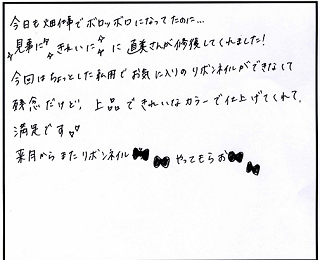 今日も畑仕事でボロッボロになってたのに…
見事に きれいに に 直美さんが修復してくれました!
今回はちょっとした私用でお気に入りのリボンネイルができなくて
残念だけど、上品できれいなカラーで仕上げてくれて、
満足です
来月からまたリボンネイル やってもらお